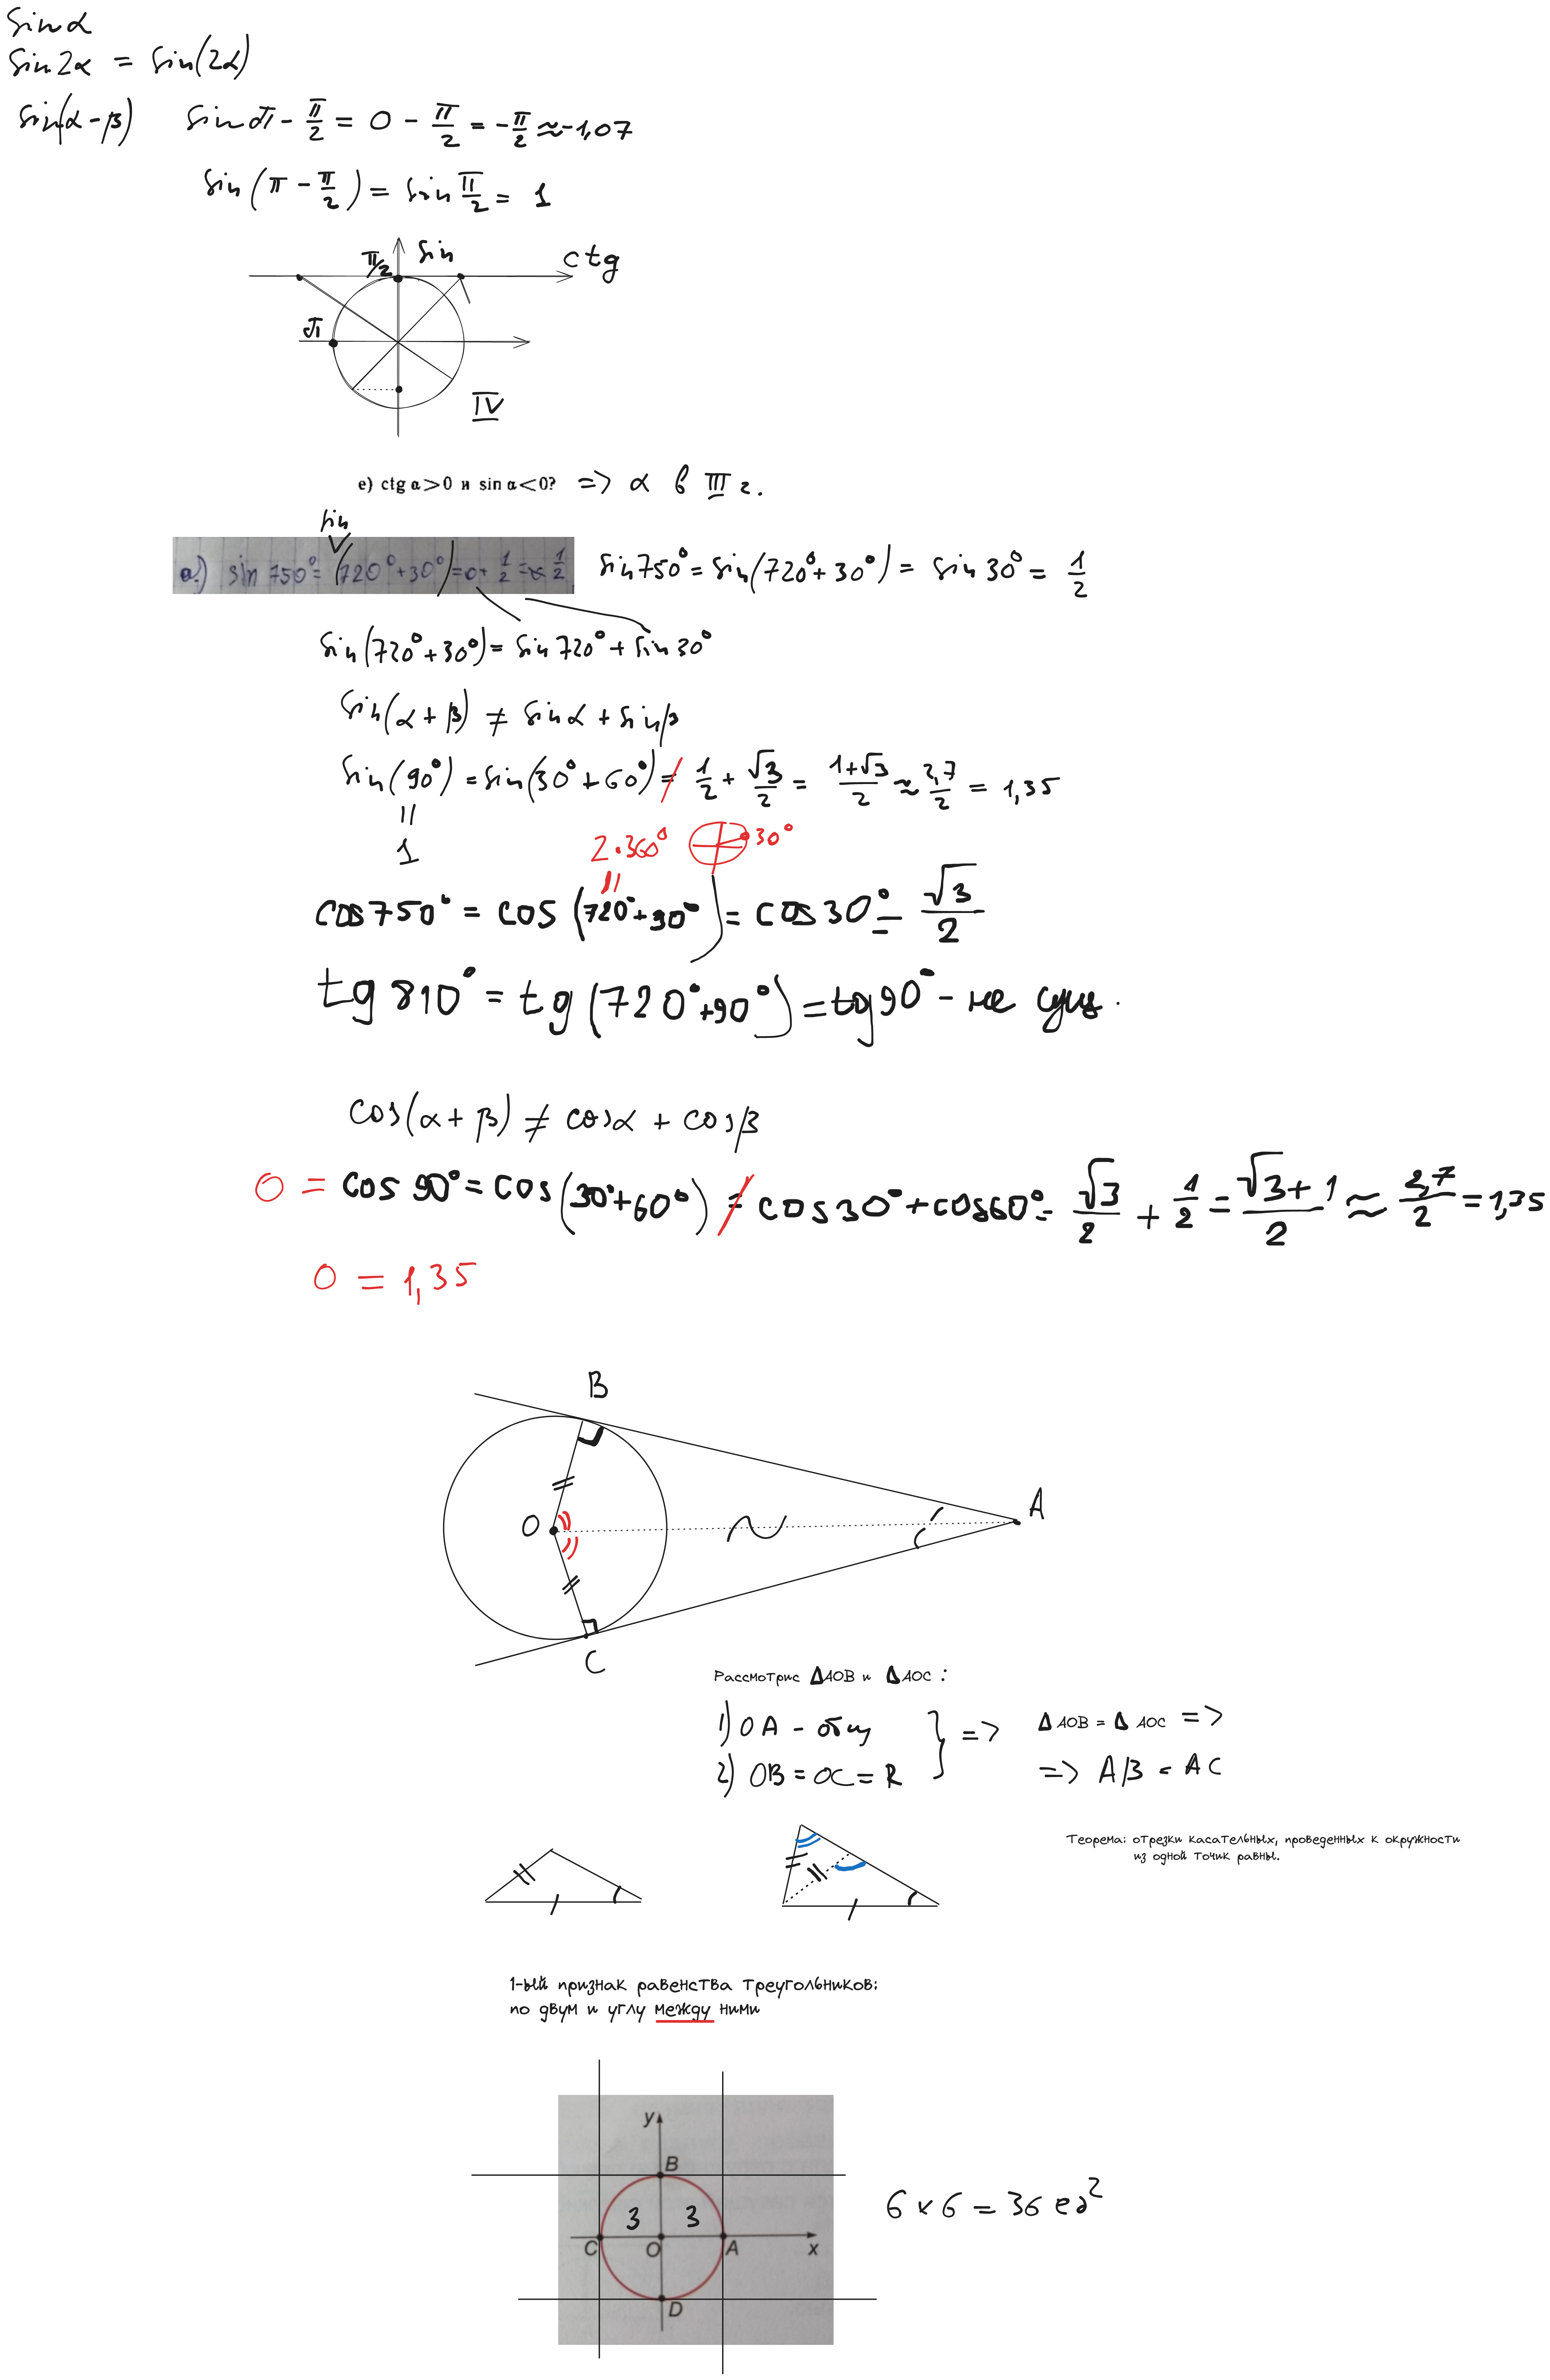 sin α
sin 2α = sin(2α)
sin(α - β) sin π - π/2 = 0 - π/2 = - π/2 ≈ -1,07
sin (π - π/2) = sin π/2 = 1
π/2 sin ctg
π
IV
е) ctg α > 0 и sin α < 0? => α в III г.
sin
а.) sin 750° = (720° + 30°) = 0 + 1/2 = 1/2 sin 750° = sin(720° + 30°) = sin 30° = 1/2
sin(720° + 30°) = sin 720° + sin 30°
sin(α + β) ≠ sin α + sin β
sin(90°) = sin(30° + 60°) ≠ 1/2 + √3/2 = (1+√3)/2 ≈ 2,7/2 = 1,35
=
1
2·360° 30°
=
cos 750° = cos (720° + 30°) = cos 30° = √3/2
tg 810° = tg (720° + 90°) = tg 90° - не сущ.
cos(α + β) ≠ cos α + cos β
0 = cos 90° = cos (30° + 60°) ≠ cos 30° + cos 60° = √3/2 + 1/2 = (√3 + 1)/2 ≈ 2,7/2 = 1,35
0 = 1,35
B
O
A
C
Рассмотрис Δ AOB и Δ AOC :
1) OA - общ } => Δ AOB = Δ AOC =>
2) OB = OC = R => AB = AC
Теорема: отрезки касательных, проведенных к окружности
из одной точик равны.
1-ый признак равенства треугольников:
по двум и углу между ними
y
B
3 3
C O A x
D
6 × 6 = 36 ед²